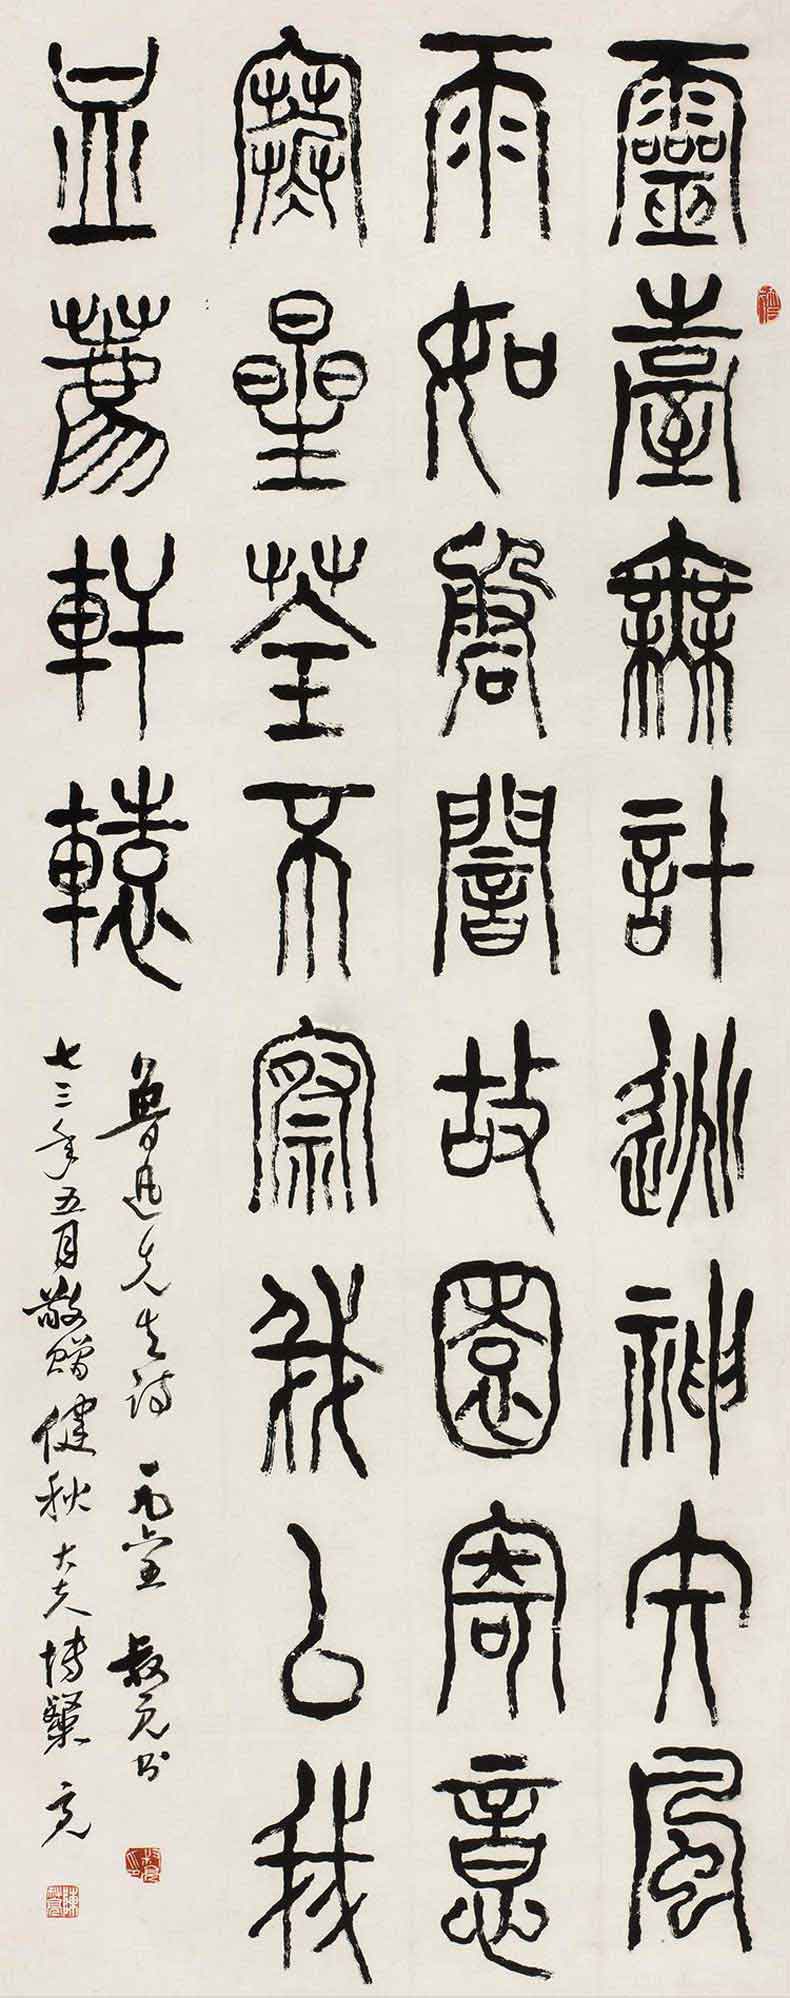 靈臺無計逃神矢風
雨如磐闇故園寄意
寒星荃不察我以我
血薦軒轅
魯迅先生詩 叔亮書
七三年五月敬贈健秋大夫博粲 亮